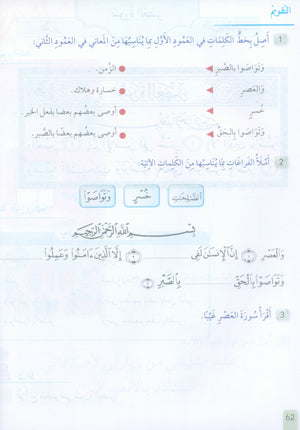 التقويم
1 أَصِلُ بِخَطٍّ الكَلِمَاتِ في العَمُودِ الأَوَّلِ بِمَا يُنَاسِبُهَا مِنَ المَعَاني في العَمُودِ الثَّاني:
وَتَوَاصَوْا بِالصَّبْرِ الزَّمن.
وَالعَصْرِ خسارة وهلاك.
خُسْرٍ أوصى بعضُهم بعضا بفعل الخير.
وَتَوَاصَوْا بِالحَقِّ أوصى بعضُهم بعضًا بالصَّبر.
2 أَمْلَأُ الفَرَاغَاتِ بِمَا يُنَاسِبُهَا مِنَ الكَلِمَاتِ الآتِيَةِ:
ٱلصَّٰلِحَٰتِ خُسْرٍ وَتَوَاصَوْا
بِسْمِ ٱللَّهِ ٱلرَّحْمَٰنِ ٱلرَّحِيمِ
وَٱلْعَصْرِ ١ إِنَّ ٱلْإِنسَٰنَ لَفِى ٢ إِلَّا ٱلَّذِينَ ءَامَنُوا۟ وَعَمِلُوا۟
وَتَوَاصَوْا۟ بِٱلْحَقِّ بِٱلصَّبْرِ ٣
3 أَقْرَأُ سُورَةَ العَصْرِ غَيْبًا.
62